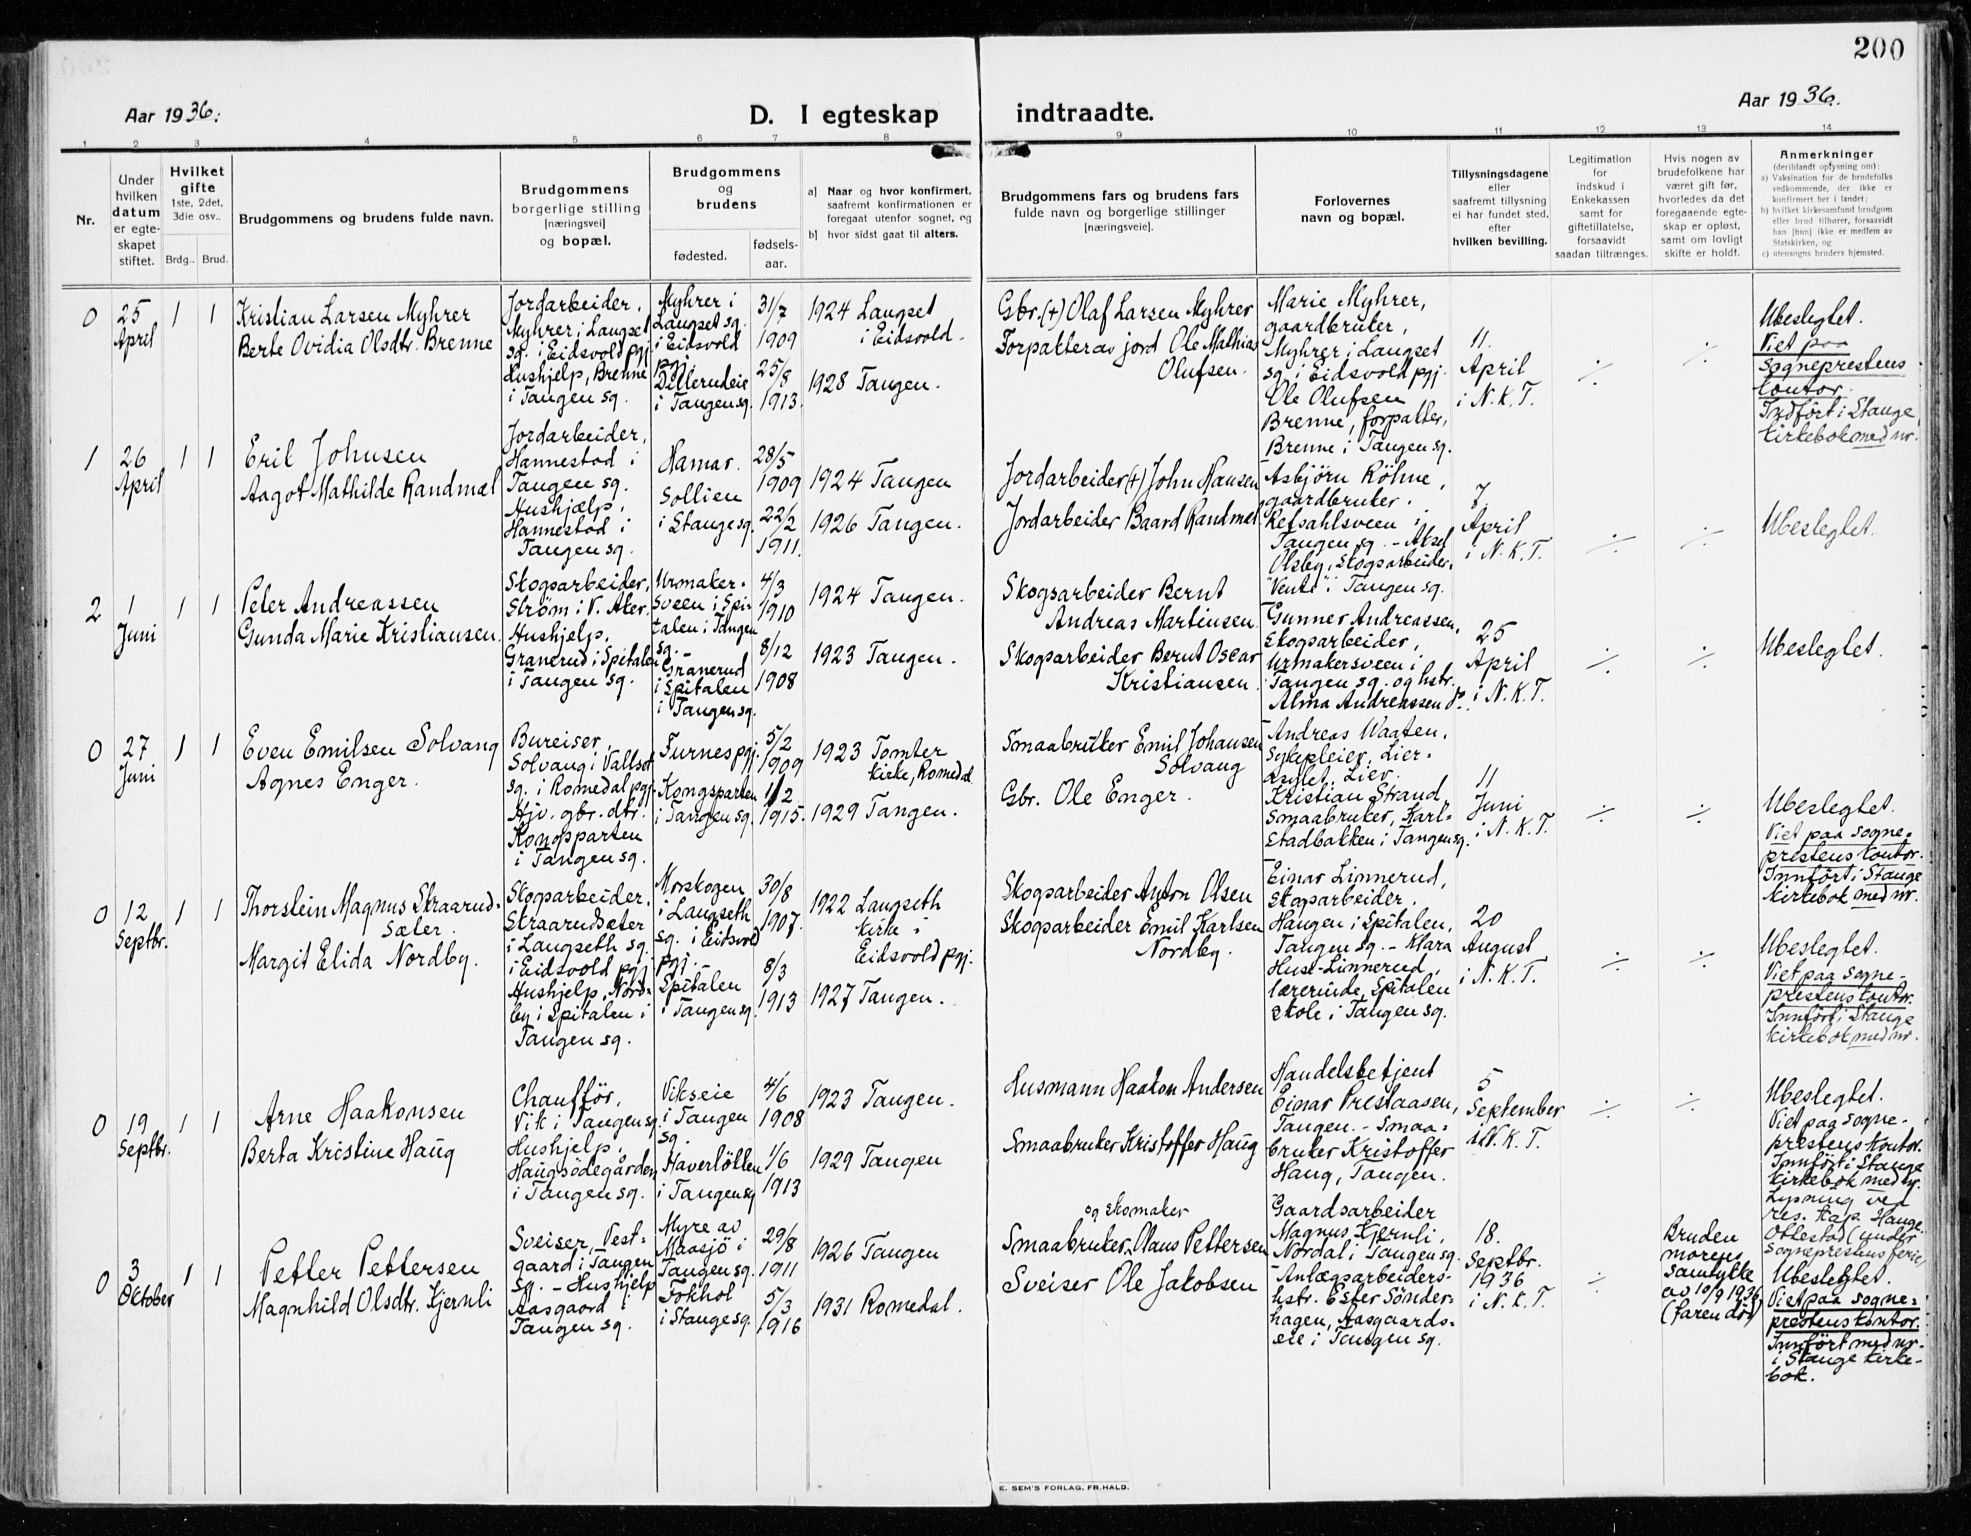 200
Aar 1936.
D. I egteskap indtraadte.
Aar 1936.
1 2 3 4 5 6 7 8 9 10 11 12 13 14
Nr.
Under
hvilken
datum
er egte-
skapet
stiftet.
Hvilket
gifte
1ste, 2det,
3die osv..
Brdg.. Brud.
Brudgommens og brudens fulde navn.
Brudgommens
borgerlige stilling
[næringsvei]
og bopæl.
Brudgommens
og
brudens
fødested.
fødsels-
aar.
a] Naar og hvor konfirmert,
saafremt konfirmationen er
foregaat utenfor sognet, og
b] hvor sidst gaat til alters.
Brudgommens fars og brudens fars
fulde navn og borgerlige stillinger
[næringsveie].
Forlovernes
navn og bopæl.
Tillysningsdagene
eller
saafremt tillysning
ei har fundet sted,
efter
hvilken bevilling.
Legitimation
for
indskud i
Enkekassen
samt for
giftetillatelse,
forsaavidt
saadan tiltrænges.
Hvis nogen av
brudefolkene har
været gift før,
hvorledes da det
foregaaende egte-
skap er opløst,
samt om lovligt
skifte er holdt.
Anmerkninger
(deriblandt oplysning om):
a) Vaksination for de brudefolks
vedkommende, der ikke er
konfirmert her i landet;
b) hvilket kirkesamfund brudgom
eller brud tilhører, forsaavidt
han [hun] ikke er medlem av
Statskirken, og
c) utensogns bruders hjemsted.
0
25
April
1 1
Kristian Larsen Myhrer
Berte Ovidia Olsdtr. Brenne
Jordarbeider,
Myhrer i Langset
sg. i Eidsvold pgj
Hushjelp, Brenne
i Tangen sg.
Myhrer i
Langset sg.
i Eidsvold
pgj.
Dillerudeie
i Tangen sg.
31/7
1909
25/8
1913.
1924 Langset
i Eidsvold.
1928 Tangen.
Gbr. (+) Olaf Larsen Myhrer
Forpakter av jord Ole Mathias
Olufsen.
Marie Myhrer,
gaardbruker,
Myhrer i Langset
sg. i Eidsvold pgj.
Ole Olufsen
Brenne, forpakter,
Brenne i Tangen sg.
11.
April
i N.K.T.
÷ ÷
Ubeslegtet.
Viet paa
Sogneprestens
kontor.
Indført i Stange
kirkebok med nr.
1
26
April
1 1
Erik Johnsen
Aagot Mathilde Randmæl
Jordarbeider,
Hannestad i
Tangen sg.
Hushjælp,
Hannestad i
Tangen sg.
Hamar.
Sollien
i Stange sg.
28/5
1909
22/2
1911.
1924 Tangen
1926 Tangen.
Jordarbeider (+) John Hansen
Jordarbeider Baard Randmæl
Asbjørn Röhne,
gaardbruker.
Refsahlsveen i
Tangen sg. - Aksel
Olsby, Skogsarbeider,
"Vente" i Tangen sg.
7.
April
i N.K.T.
÷ ÷
Ubeslegtet.
2
1
Juni
1 1
Peter Andreassen
Gunda Marie Kristiansen.
Skogsarbeider,
Strøm i V. Aker.
Hushjelp.
Granerud i Spitalen
i Tangen sg.
Urmaker-
sveen i Spi-
talen i Tangen
sg. -
Granerud
i Spitalen
i Tangen sg.
4/3
1910
8/12
1908
1924 Tangen.
1923 Tangen.
Skogsarbeider Bernt
Andreas Martinsen
Skogsarbeider Bernt Oscar
Kristiansen.
Gunner Andreassen,
skogsarbeider,
Urmakersveen i
Tangen sg. og hstr.
Alma Andreassen
25
April
i N.K.T.
÷ ÷
Ubeslegtet.
0
27
Juni
1 1
Even Emilsen Solvang
Agnes Enger.
Bureiser,
Solvang i Vallset
sg. i Romedal pgj.
Hjv. gbr. dtr.
Kongsparten
i Tangen sg.
Furnes pgj.
Kongsparten
i Tangen sg.
5/2
1909
1/2
1915.
1923 Tomter
kirke, Romedal
1929 Tangen.
Smaabruker Emil Johansen
Solvang
Gbr. Ole Enger.
Andreas Waaten,
Sykepleier, Lier-
asylet, Lier.
Kristian Strand
Smaabruker, Karl-
stadbakken i Tangen sg.
11
Juni
i N.K.T.
÷ ÷
Ubeslegtet.
Viet paa sogne-
prestens kontor.
Innført i Stange
kirkebok med nr.
0
12
Septbr.
1 1
Thorstein Magnus Skraarud-
sæter.
Margit Elida Nordby.
Skogsarbeider.
Straarudsæter
i Langseth sg.
i Eidsvold pgj
Hushjelp, Nord-
by i Spitalen i
Tangen sg.
Morskogen
i Langseth
sg. i Eidsvold
pgj. -
Spitalen
i Tangen sg.
30/8
1907.
8/3
1913
1922 Langseth
kirke i
Eidsvold pgj.
1927 Tangen.
Skogsarbeider Anton Olsen
Skogsarbeider Emil Karlsen
Nordby.
Einar Linnerud,
skogsarbeider.
Haugen i Spitalen,
Tangen sg. - Klara
Huse-Linnerud,
lærerinde, Spitalen
skole i Tangen sg.
20
August
i N.K.T.
÷ ÷
Ubeslegtet.
Viet paa sogne-
prestens kontor.
Innført i Stange
kirkebok med nr.
0
19
Septbr.
1 1
Arne Haakonsen
Berta Kristine Haug
Chauffør,
Vik i Tangen sg.
Hushjelp,
Haugsödegården
i Tangen sg.
Vikseie
i Tangen
sg.
Haverlökken
i Tangen sg
4/6
1908
1/6
1913
1923 Tangen.
1929 Tangen
Husmann Haakon Andersen
Smaabruker Kristoffer Haug
Handelsbetjent
Einar Prestaasen,
Tangen. - Smaa-
bruker Kristoffer
Haug, Tangen.
5
September
i N.K.T.
÷ ÷
Ubeslegtet.
Viet paa sogne-
prestens kontor.
Innført i Stange
kirkebok med nr.
Lysning ved
res. kap. Hauge
Ottestad (under
Sogneprestens ferie)
0
3
October
1 1
Petter Pettersen
Magnhild Olsdtr. Kjernli
Sveiser, Vest-
gaard i Tangen
sg. - Hushjelp
Aasgaard i
Tangen sg.
Myre av
Maasjö i
Tangen sg.
Fokhol
i Stange sg.
29/8
1911
5/3
1916
1926 Tangen
1931 Romedal.
og skomaker
Smaabruker Olaus Pettersen
Sveiser Ole Jakobsen
Gaardsarbeider
Magnus Kjernli,
Nordal i Tangen sg.
Anlægsarbeiders-
hstr. Ester Sönder-
hagen, Aasgaards-
eie i Tangen sg.
18.
Septbr.
1936
i N.K.T.
÷
Bruden
morens
samtykke
av 10/9 1936
(faren død)
Ubeslegtet.
Viet paa sogne-
prestens kontor.
Innført med nr.
i Stange kirke-
bok.
E. SEM'S FORLAG, FR.HALD.